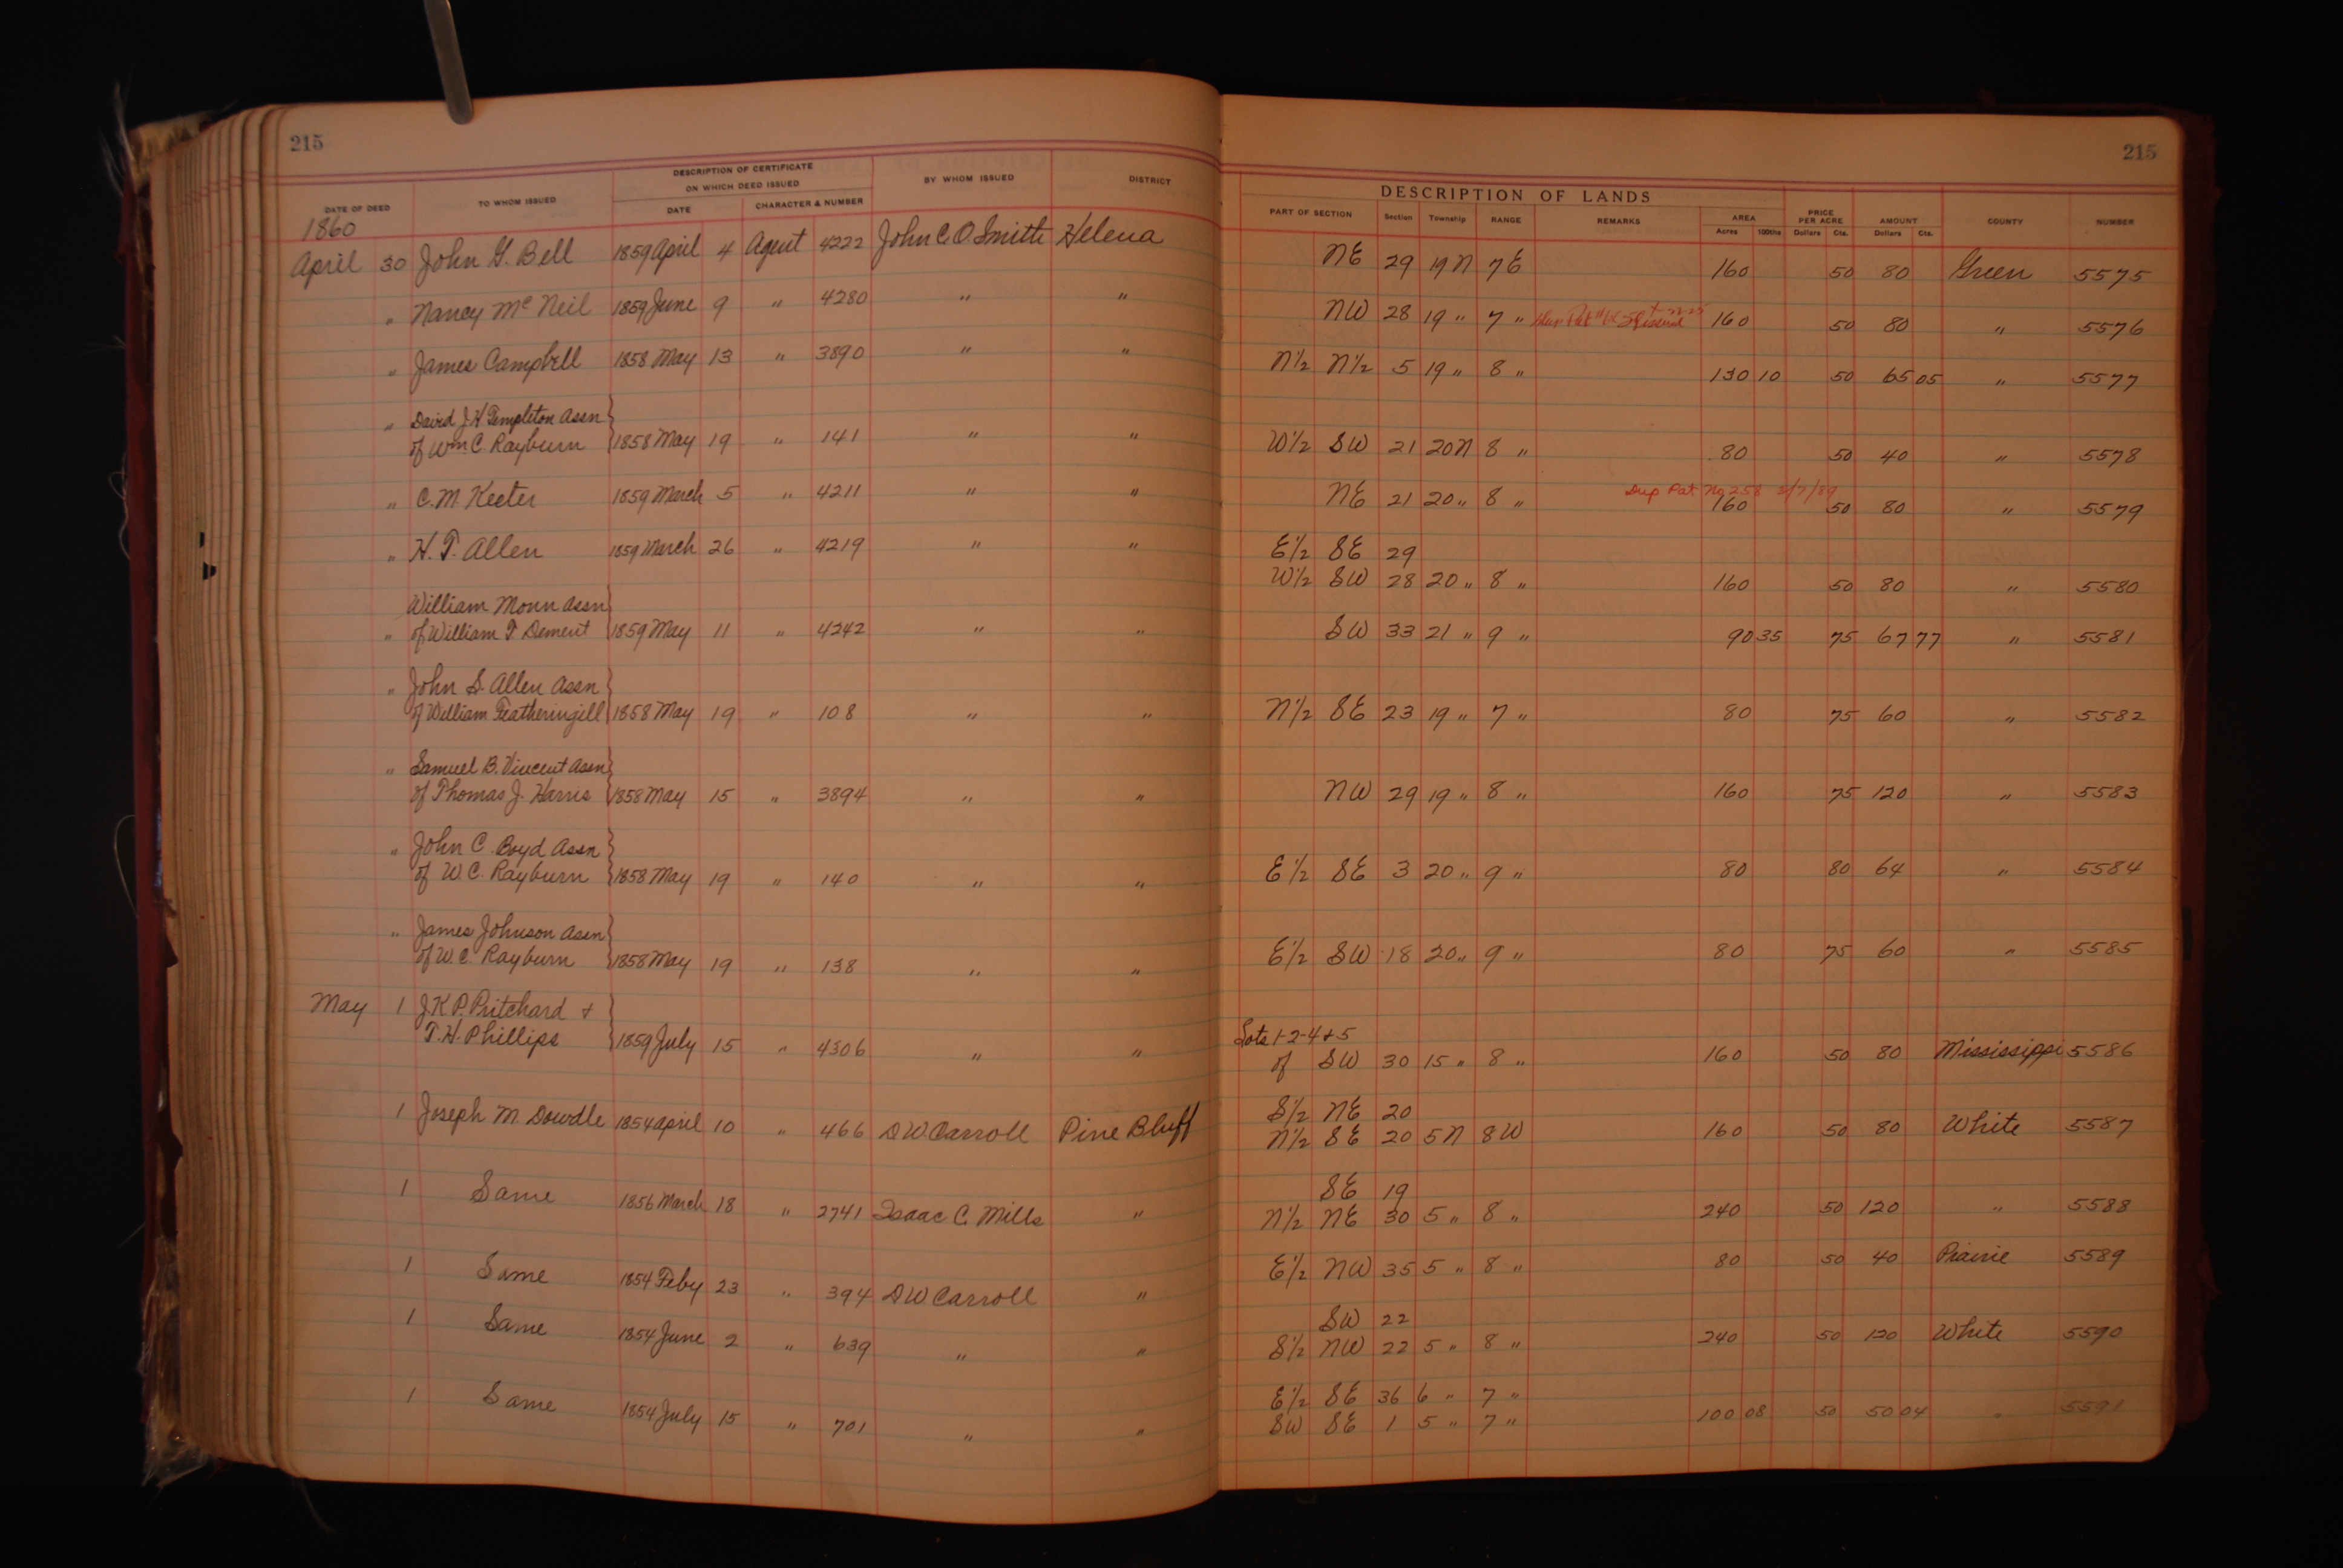 215
DATE OF DEED TO WHOM ISSUED DESCRIPTION OF CERTIFICATE ON WHICH DEED ISSUED DATE CHARACTER & NUMBER BY WHOM ISSUED DISTRICT
1860
April 30 John G. Bell 1859 April 4 Agent 4222 John C. O. Smith Helena
" Nancy McNeil 1859 June 9 " 4280 " "
" James Campbell 1858 May 13 " 3890 " "
" David J. H. Templeton Assn
of Wm. C. Rayburn 1858 May 19 " 141 " "
" C. M. Keeter 1859 March 5 " 4211 " "
" H. T. Allen 1859 March 26 " 4219 " "
William Monn Assn
" of William T. Dement 1859 May 11 " 4242 " "
" John S. Allen Assn
of William Featheringill 1858 May 19 " 108 " "
" Samuel B. Vincent Assn
of Thomas J. Harris 1858 May 15 " 3894 " "
" John C. Boyd Assn
of W. C. Rayburn 1858 May 19 " 140 " "
" James Johnson Assn
of W. C. Rayburn 1858 May 19 " 138 " "
May 1 J. K. P. Pritchard +
T. H. Phillips 1859 July 15 " 4306 " "
1 Joseph M. Dowdle 1854 April 10 " 466 D W Carroll Pine Bluff
1 Same 1856 March 18 " 2741 Isaac C. Mills "
1 Same 1854 Feby 23 " 394 D W Carroll "
1 Same 1854 June 2 " 639 " "
1 Same 1854 July 15 " 701 " "
215
DESCRIPTION OF LANDS
PART OF SECTION Section Township RANGE REMARKS AREA Acres 100ths PRICE PER ACRE Dollars Cts. AMOUNT Dollars Cts. COUNTY NUMBER
NE 29 19 N 7 E 160 50 80 Green 5575
NW 28 19 " 7 " Dup Pat issued 160 50 80 " 5576
N 1/2 N 1/2 5 19 " 8 " 130 10 50 65 05 " 5577
W 1/2 SW 21 20 N 8 " 80 50 40 " 5578
Dup Pat No 258 3/7/89
NE 21 20 " 8 " 160 50 80 " 5579
E 1/2 SE 29
W 1/2 SW 28 20 " 8 " 160 50 80 " 5580
SW 33 21 " 9 " 90 35 75 67 77 " 5581
N 1/2 SE 23 19 " 7 " 80 75 60 " 5582
NW 29 19 " 8 " 160 75 120 " 5583
E 1/2 SE 3 20 " 9 " 80 80 64 " 5584
E 1/2 SW 18 20 " 9 " 80 75 60 " 5585
Lots 1-2-4+5
of SW 30 15 " 8 " 160 50 80 Mississippi 5586
S 1/2 NE 20
N 1/2 SE 20 5 N 8 W 160 50 80 White 5587
SE 19
N 1/2 NE 30 5 " 8 " 240 50 120 " 5588
E 1/2 NW 35 5 " 8 " 80 50 40 Prairie 5589
SW 22
S 1/2 NW 22 5 " 8 " 240 50 120 White 5590
E 1/2 SE 36 6 " 7 "
SW SE 1 5 " 7 " 100 08 50 50 04 " 5591